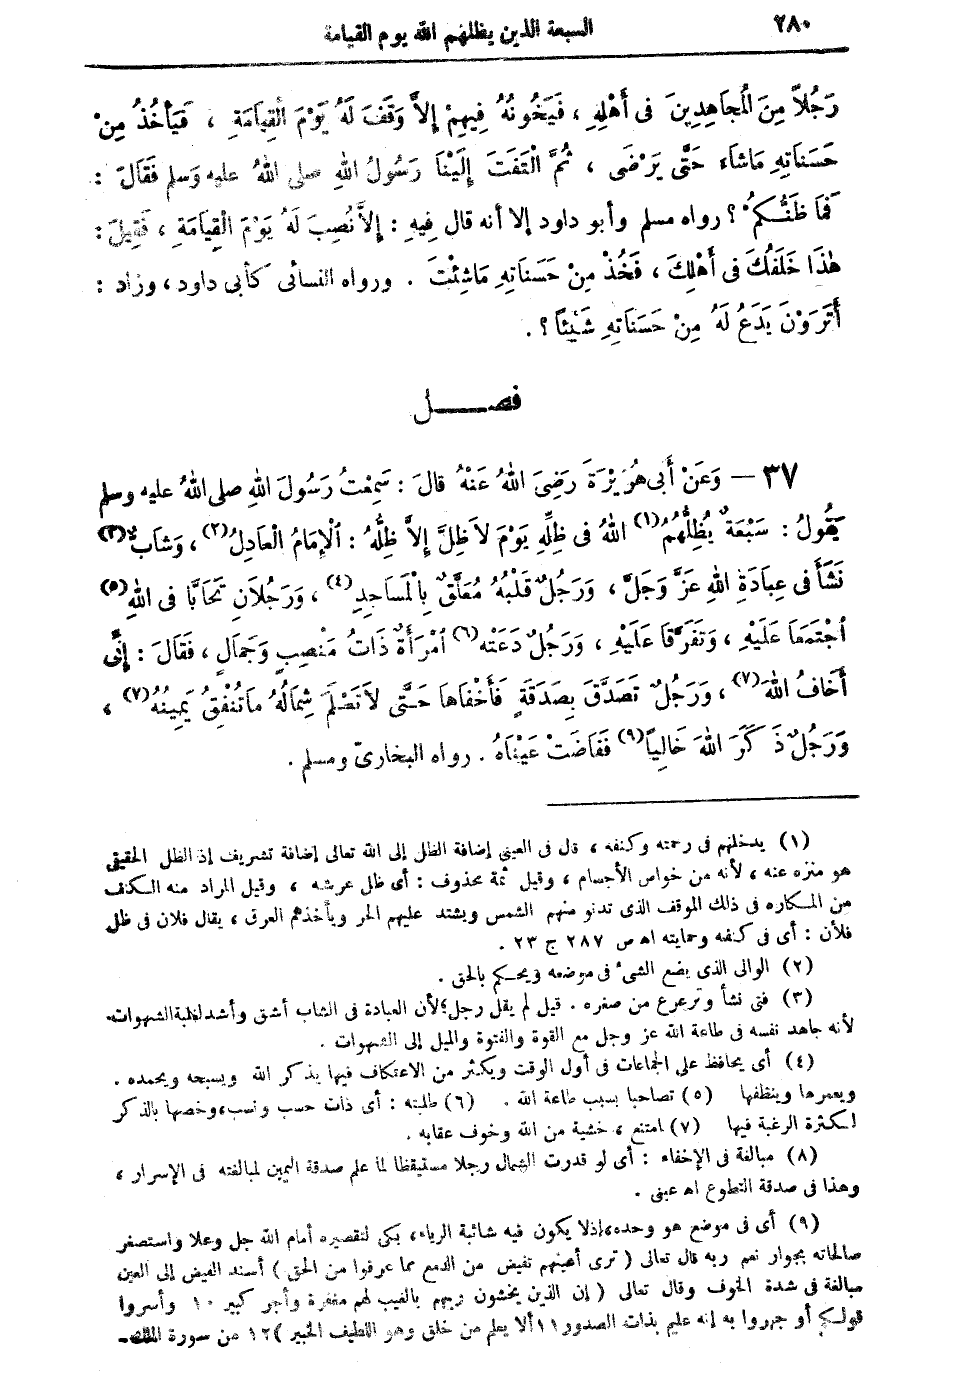 ٢٨٠ السبعة الذين يظلهم الله يوم القيامة
رَجُلاً مِنَ الْمُجَاهِدِينَ فى أَهْلِهِ ، فَيَخُونُهُ فِيهِمْ إِلاَّ وَقَفَ لَهُ يَوْمَ الْقِيَامَةِ ، فَيَأْخُذُ مِنْ
حَسَنَاتِهِ مَاشَاء حَتَّى يَرْضَى ، ثُمَّ الْتَفَتَ إِلَيْنَا رَسُولُ اللهِ صلى اللهُ عليه وَسلم فَقَالَ :
فَمَا ظَنُّكُمْ ؟ رواه مسلم وأبو داود إلا أنه قال فِيهِ : إِلاَّ نُصِبَ لَهُ يَوْمَ الْقِيَامَةِ ، فَقِيلَ :
هٰذَا خَلَفَكَ فى أَهْلِكَ ، فَخُذْ مِنْ حَسَنَاتِهِ مَاشِئْتَ . ورواه النسائى كأبى داود ، وزاد :
أَتَرَوْنَ يَدَعُ لَهُ مِنْ حَسَنَاتِهِ شَيْئًا ؟ .
فصـــل
٣٧ — وَعَنْ أَبى هُرَيْرَةَ رَضِىَ اللهُ عَنْهُ قالَ : سَمِعْتُ رَسُولَ اللهِ صلى اللهُ عليه وسلم
يَقُولُ : سَبْعَةٌ يُظِلُّهُمُ (١) اللهُ فى ظِلِّهِ يَوْمَ لاَظِلَّ إِلاَّ ظِلُّهُ : ٱلْإِمَامُ الْعَادِلُ (٢) ، وَشَابٌّ (٣)
نَشَأَ فى عِبَادَةِ اللهِ عَزَّ وَجَلَّ ، وَرَجُلٌ قَلْبُهُ مُعَلَّقٌ بِالْمَسَاجِدِ (٤) ، وَرَجُلاَنِ تَحَابَّا فى اللهِ (٥)
ٱجْتَمَعَا عَلَيْهِ ، وَتَفَرَّقَا عَلَيْهِ ، وَرَجُلٌ دَعَتْه (٦) ٱمْرَأَةٌ ذَاتُ مَنْصِبٍ وَجَمَالٍ ، فَقَالَ : إِنِّى
أَخَافُ اللهَ (٧) ، وَرَجُلٌ تَصَدَّقَ بِصَدَقَةٍ فَأَخْفَاهَا حَتَّى لاَتَعْلَمَ شِمَالُهُ مَاتُنْفِقُ يَمِينُهُ (٧) ،
وَرَجُلٌ ذَكَرَ اللهَ خَالِياً (٩) فَفَاضَتْ عَيْنَاهُ . رواه البخارىّ ومسلم .
(١) يدخلهم فى رحمته وكنفه ، قال فى العينى إضافة الظل إلى الله تعالى إضافة تشريف إذ الظل الحقيقى
هو منزه عنه ، لأنه من خواص الأجسام ، وقيل ثمة محذوف : أى ظل عرشه ، وقيل المراد منه الكنف
من المكاره فى ذلك الموقف الذى تدنو منهم الشمس ويشتد عليهم الحر ويأخذهم العرق ، يقال فلان فى ظل
فلان : أى فى كنفه وحمايته اه ص ٢٨٧ ج ٢٣ .
(٢) الوالى الذى يضع الشىء فى موضعه ويحكم بالحق .
(٣) فتى نشأ وترعرع من صغره . قيل لم يقل رجل ؛ لأن العبادة فى الشاب أشق وأشد لغلبة الشهوات.
لأنه جاهد نفسه فى طاعة الله عز وجل مع القوة والفتوة والميل إلى الشهوات .
(٤) أى يحافظ على الجماعات فى أول الوقت ويكثر من الاعتكاف فيها يذكر الله ويسبحه ويحمده .
ويعمرها وينظفها (٥) تصاحبا بسبب طاعة الله . (٦) طلبته : أى ذات حسب ونسب، وخصها بالذكر
لكثرة الرغبة فيها (٧) امتنع ، خشية من الله وخوف عقابه .
(٨) مبالغة فى الإخفاء : أى لو قدرت الشمال رجلا مستيقظا لما علم صدقة اليمين لمبالغته فى الإسرار ،
وهذا فى صدقة التطوع اه عينى .
(٩) أى فى موضع هو وحده، إذ لا يكون فيه شائبة الرياء، يكى لتقصيره أمام الله جل وعلا واستصغر
صالحاته بجوار نعم ربه قال تعالى ( ترى أعينهم تفيض من الدمع مما عرفوا من الحق ) أسند الفيض إلى العين
مبالغة فى شدة الخوف وقال تعالى ( إن الذين يخشون ربهم بالغيب لهم مغفرة وأجر كبير ١٠ وأسروا
قولكم أو جهروا به إنه عليم بذات الصدور ١١ ألا يعلم من خلق وهو اللطيف الخبير ) ١٢ من سورة الملك.